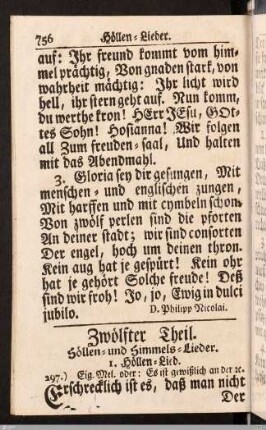 756 Höllen-Lieder.
auf: Ihr freund kommt vom him-
mel prächtig, Von gnaden stark, von
wahrheit mächtig: Ihr licht wird
hell, ihr stern geht auf. Nun komm,
du werthe kron! HErr JEsu, GOt-
tes Sohn! Hosianna! Wir folgen
all Zum freuden-saal, Und halten
mit das Abendmahl.
3. Gloria sey dir gesungen, Mit
menschen- und englischen zungen,
Mit harffen und mit cymbeln schon.
Von zwölf perlen sind die pforten
An deiner stadt; wir sind consorten
Der engel, hoch um deinen thron.
Kein aug hat je gespürt! Kein ohr
hat je gehört Solche freude! Deß
sind wir froh! Jo, jo, Ewig in dulci
jubilo.
D. Philipp Nicolai.
Zwölfter Theil.
Höllen- und Himmels-Lieder.
1. Höllen-Lied.
297.) Eig. Mel. oder: Es ist gewißlich an der ꝛc.
Erschrecklich ist es, daß man nicht
Der